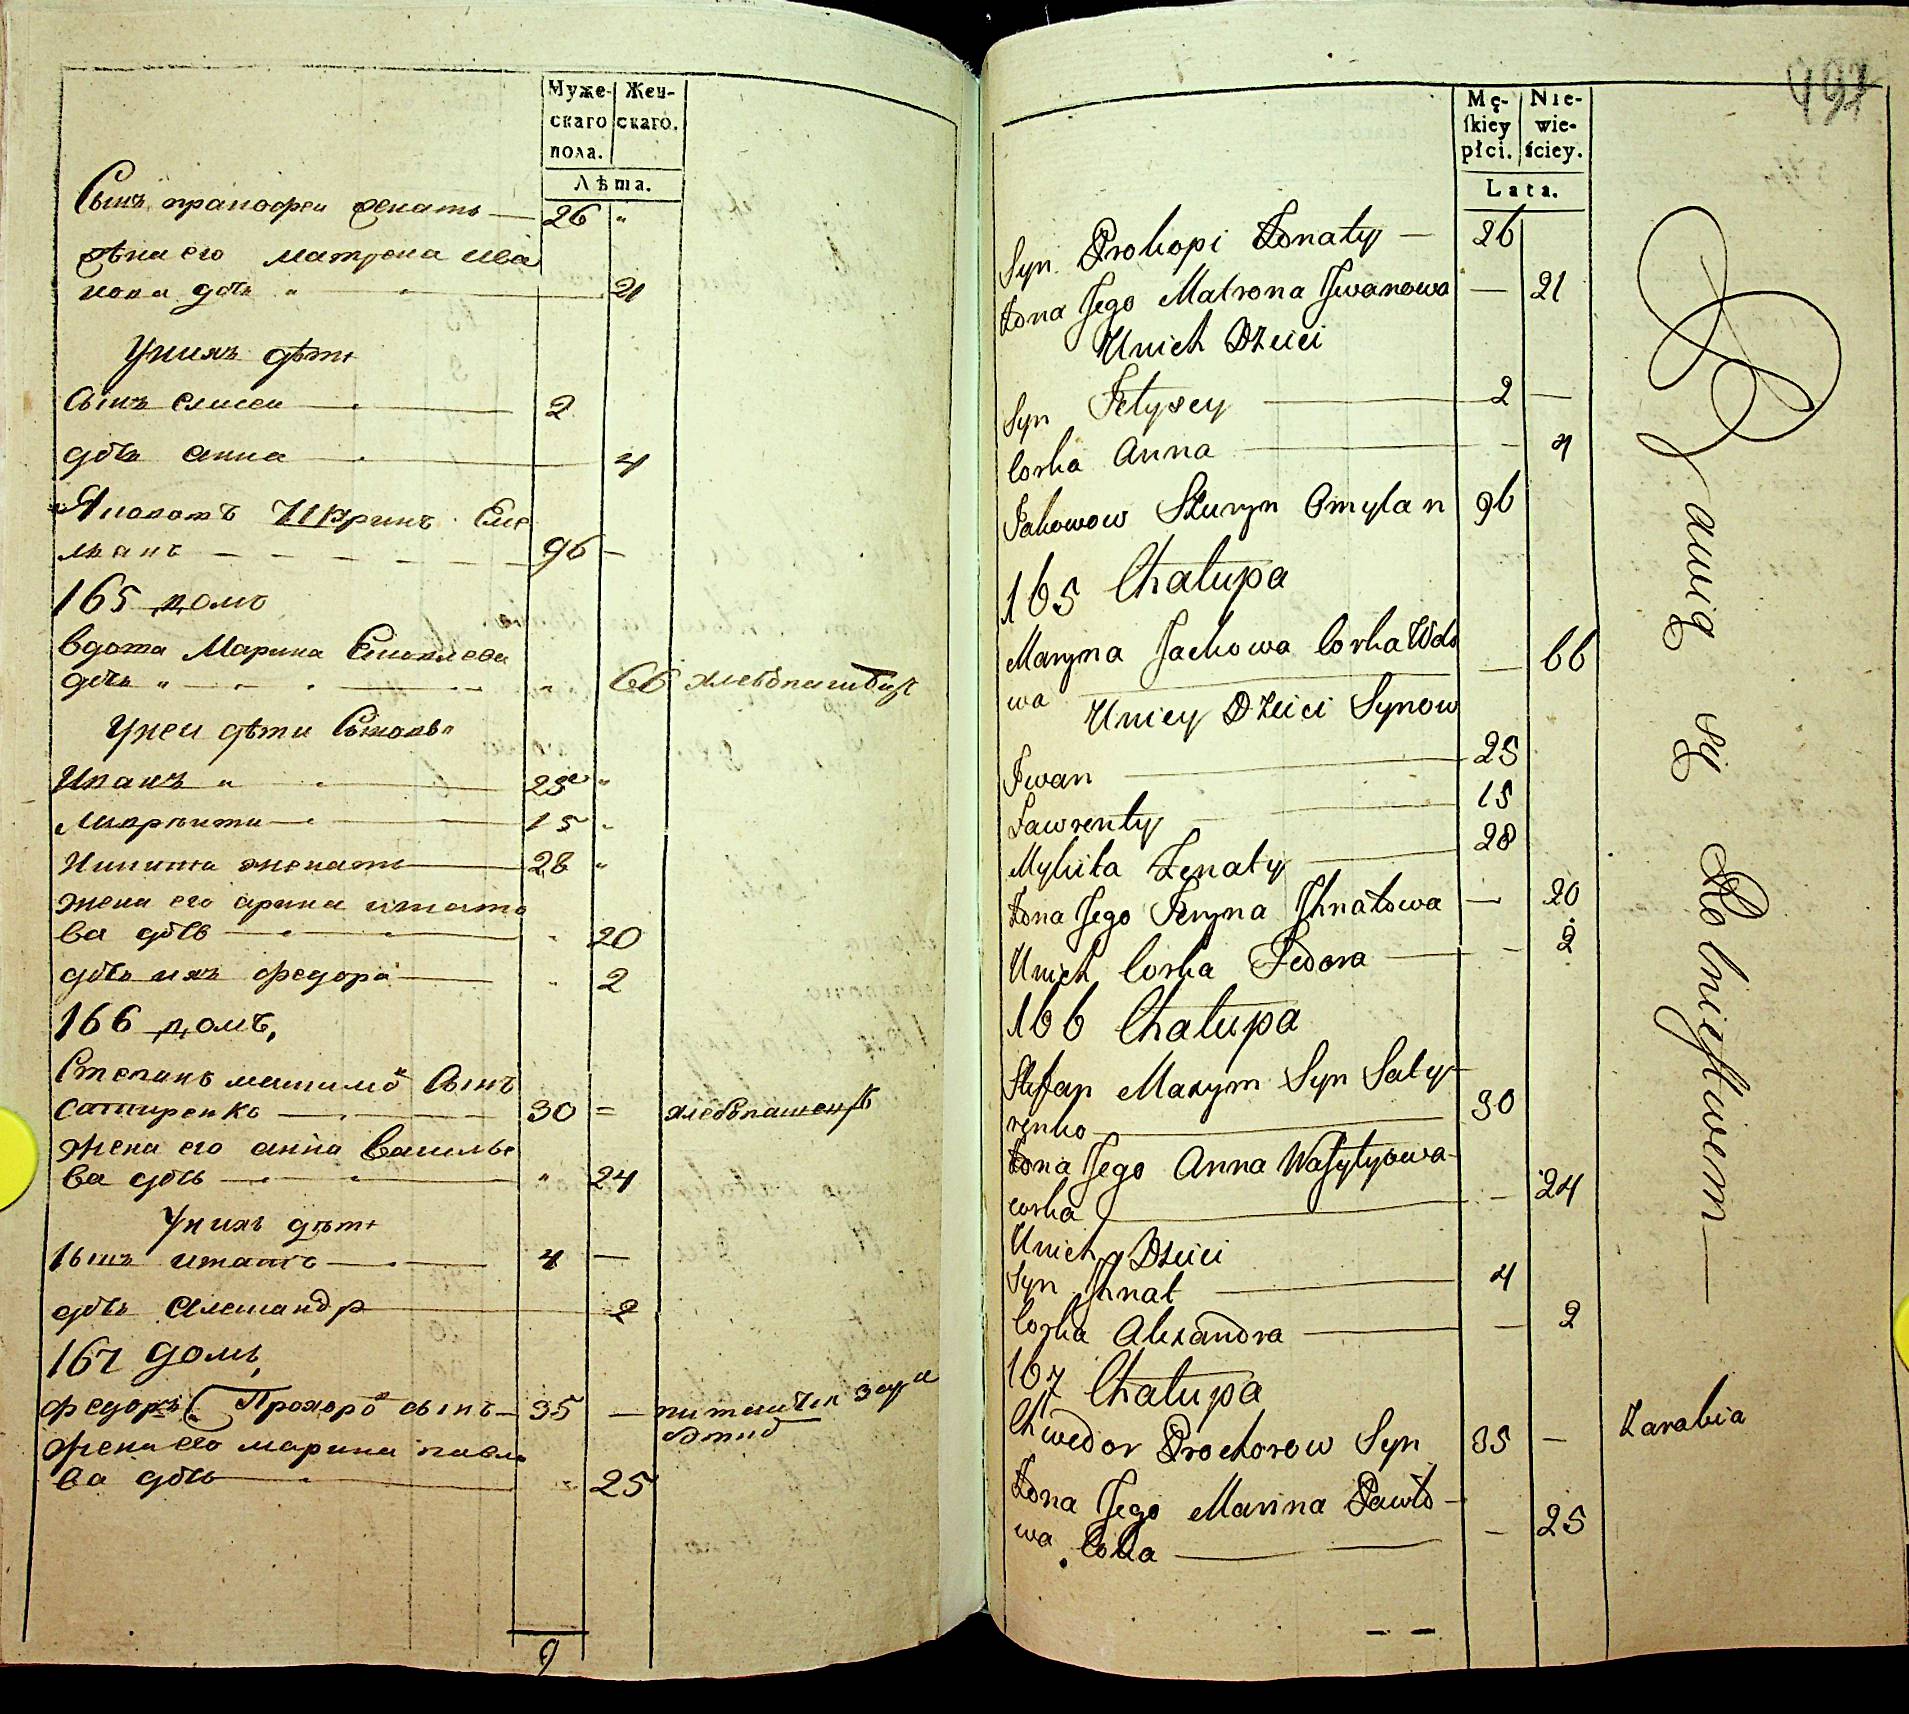 Муже-
скаго
пола.
Жен-
скаго.
Лѣта.
Сынъ прапофеи женатъ — 26 "
жена его матрона ива
нова дочь " — 21
У нихъ дѣти
Сынъ елисеи — 2
дочь анна — 4
Яковътъ Чюринъ Еме
льянъ — 96 —
165 домъ
вдова Марина
дочь " — " 66 хлебопашецъ
У неи дѣти Сыновья
Иванъ " — 25 "
Лаврѣнти — 15 "
Никита женатъ — 28 "
жена его арина игнато
ва дочь — 20
дочь ихъ федора — 2
166 домъ,
Степанъ максимо сынъ
сатиренко — 30 = хлебопашецъ
жена его анна василье
ва дочь — " 24
У нихъ дѣти
сынъ игнатъ — 4 —
дочь александра — 2
167 домъ,
федоръ Прохоро сынъ — 35 —
жена его марина павло
ва дочь — " 25
9
497
Mę-
skiey
płci.
Nie-
wie-
ściey.
Lata.
Syn Prokopi Żonaty — 26
Żona Jego Matrona Jwanowa — 21
Unich Dzieci
Syn Jełysey — 2 —
Corka Anna — 4
Jakowow Szuryn Omylan 96
165 Chałupa
Maryna Jackowa Corka Wdo
wa — 66
Uniey Dzieci Synow
Jwan — 25
Ławrenty — 15
Mykita Żenaty — 28
Żona Jego Jeryna Jhnatowa — 20
Unich Corka Fedora — 2
166 Chałupa
Stefan Maxym Syn Saty-
renko — 30
Żona Jego Anna Wasylyowa
corka — 24
Unich Dzieci
Syn Jhnat — 4
Corka Alexandra — 2
167 Chałupa
Chwedor Prochorow Syn 35 — Zarabia
Żona Jego Marina Pawło-
wa Corka — 25
Bawią się Rolnictwem —